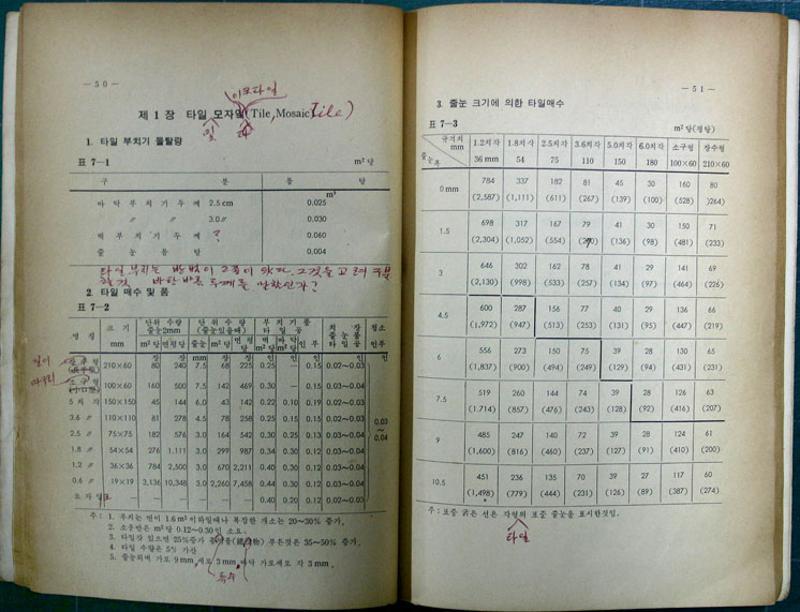 — 50 —
제 1 장 타일 모자익(Tile, Mosaic Tile)
1. 타일 부치기 몰탈량
표 7—1 m² 당
구 분 몰 탈
m³
바 닥 부 치 기 두 께 2.5cm 0.025
〃 〃 3.0〃 0.030
벽 부 치 기 두 께 ? 0.060
줄 눈 몰 탈 0.004
타일 부치는 방법이 2종이 있다. 그것을
2. 타일 매수 및 품
표 7—2
명 칭 크 기 mm 단 위 수 량 줄눈2mm 단 위 수 량 (줄눈있을때) 부 치 기 품 타 일 공 치 장 줄 눈 품 타 일 공 청소 인부
m²당 면평당 줄눈 m²당 면평당 벽 m²당 바닥 m²당 인 부
장 장 mm 장 장 인 인 인 인 인
210×60 80 240 7.5 68 225 0.25 — 0.15 0.02~0.03
100×60 160 500 7.5 142 469 0.30 — 0.15 0.03~0.04
5 치 각 150×150 45 144 6.0 43 142 0.22 0.10 0.19 0.02~0.03
3.6 〃 110×110 81 278 4.5 78 258 0.25 0.15 0.15 0.02~0.03 0.03~0.04
2.5 〃 75×75 182 576 3.0 164 542 0.30 0.25 0.13 0.03~0.04
1.8 〃 54×54 276 1,111 3.0 299 987 0.34 0.30 0.12 0.03~0.04
1.2 〃 36×36 784 2,500 3.0 670 2,211 0.40 0.30 0.12 0.03~0.04
0.6 〃 19×19 3,136 10,348 3.0 2,260 7,458 0.44 0.30 0.12 0.03~0.04
— — — — — 0.40 0.20 0.12 0.02~0.03
주 : 1. 부치는 면이 1.6m² 이하일때나 복잡한 개소는 20~30% 증가.
2. 소구만은 m²당 0.12~0.30인 소요.
3. 타일갓 있으면 25%증가 부튼것은 35~50% 증가.
4. 타일 수량은 5% 가산
5. 줄눈피벽 가로 9mm, 세로 3mm, 바닥 가로세로 각 3mm.
특수
— 51 —
3. 줄눈 크기에 의한 타일매수
표 7—3 m²당(평당)
규격치 mm 1.2치각 1.8치각 2.5치각 3.6치각 5.0치각 6.0치각 소구형 장수형
줄눈 36mm 54 75 110 150 180 100×60 210×60
0mm 784 337 182 81 45 30 160 80
(2,587) (1,111) (611) (267) (139) (100) (528) )264)
1.5 698 317 167 79 41 30 150 71
(2,304) (1,052) (554) (136) (98) (481) (233)
3 646 302 162 78 41 29 141 69
(2,130) (998) (533) (257) (134) (97) (464) (226)
4.5 600 287 156 77 40 29 136 66
(1,972) (947) (513) (253) (131) (95) (447) (219)
6 556 273 150 75 39 28 130 65
(1,837) (900) (494) (249) (129) (94) (431) (231)
7.5 519 260 144 74 39 28 126 63
(1.714) (857) (476) (243) (128) (92) (416) (207)
9 485 247 140 72 39 28 124 61
(1,600) (816) (460) (237) (127) (91) (410) (200)
10.5 451 236 135 70 39 27 117 60
(1,498) (779) (444) (231) (126) (89) (387) (274)
주 : 표중 굵은 선은 각형의 표준 줄눈을 표시한것임.
타일